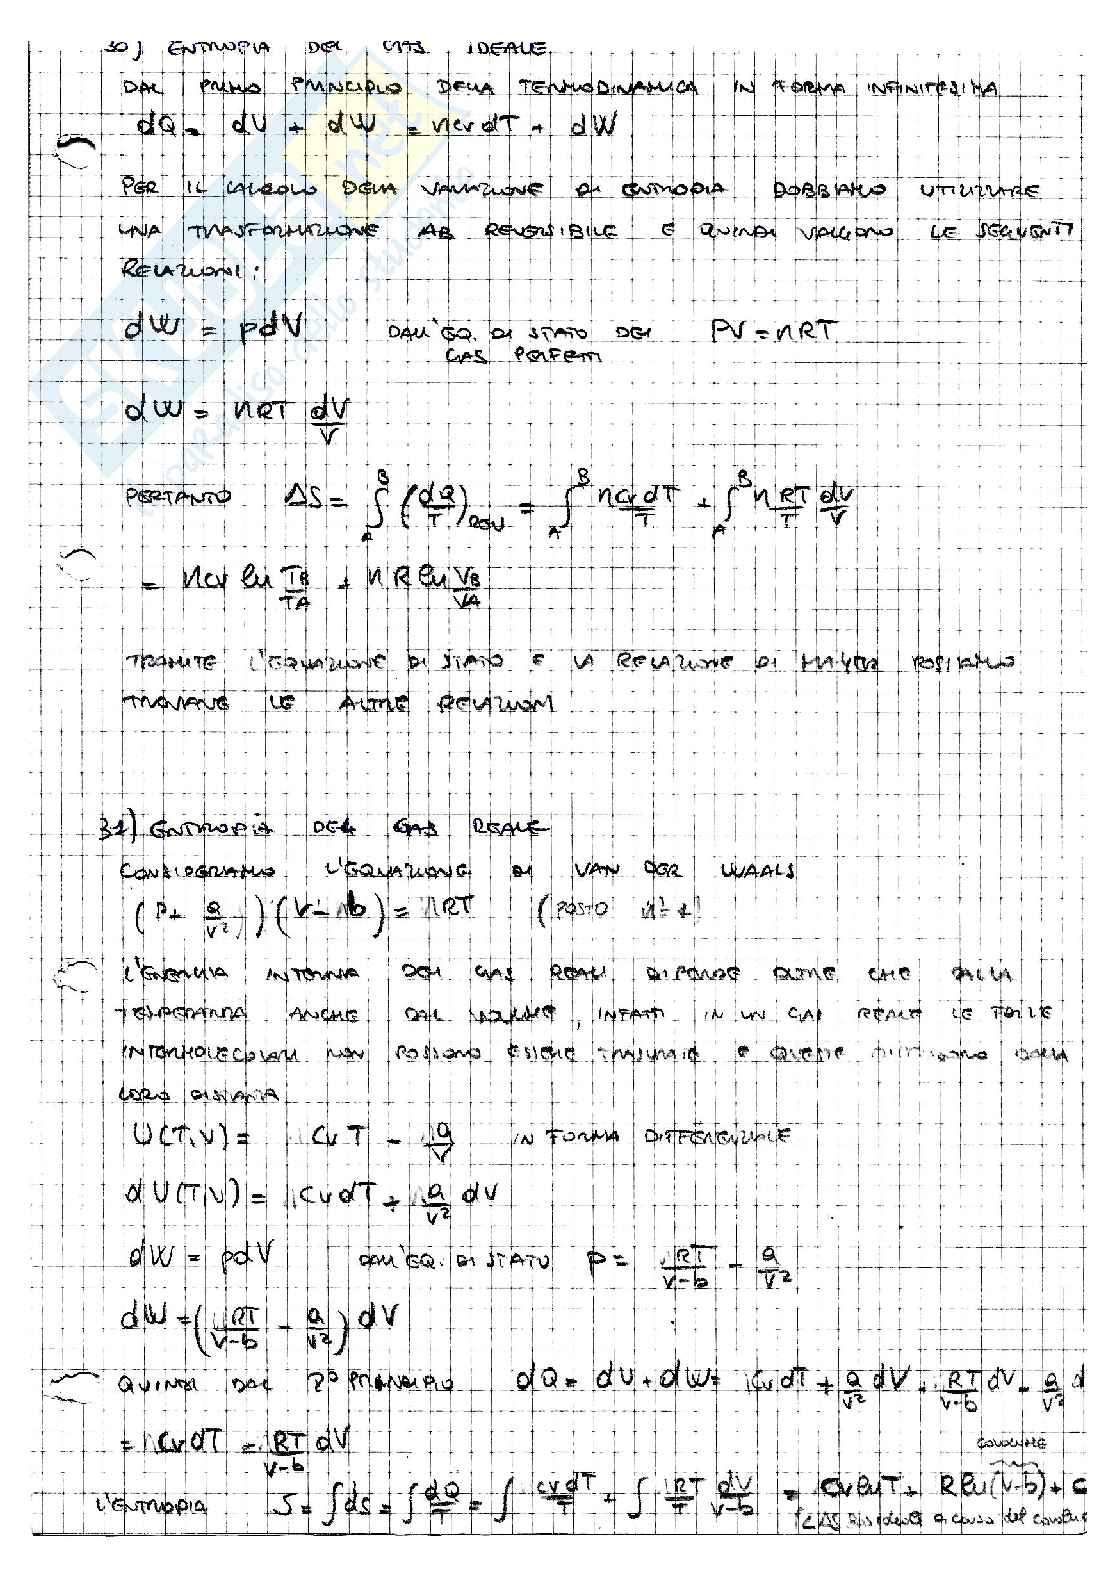 30) ENTROPIA DEL GAS IDEALE
DAL PRIMO PRINCIPIO DELLA TERMODINAMICA IN FORMA INFINITESIMA
dQ = dU + dW = ncv dT + dW
PER IL CALCOLO DELLA VARIAZIONE DI ENTROPIA DOBBIAMO UTILIZZARE
UNA TRASFORMAZIONE AB REVERSIBILE E QUINDI VALGONO LE SEGUENTI
RELAZIONI:
dW = pdV DALL'EQ. DI STATO DEI GAS PERFETTI PV = nRT
dW = nRT dV/V
PERTANTO ΔS = ∫_A^B (dQ/T)_REV = ∫_A^B ncv dT/T + ∫_A^B nRT/T dV/V
= ncv ln TB/TA + nR ln VB/VA
TRAMITE L'EQUAZIONE DI STATO E LA RELAZIONE DI MAYER POSSIAMO
TROVARE LE ALTRE RELAZIONI
31) ENTROPIA DEL GAS REALE
CONSIDERIAMO L'EQUAZIONE DI VAN DER WAALS
(P + a/V²)(V - b) = RT (POSTO n = 1)
L'ENERGIA INTERNA DEI GAS REALI DIPENDE OLTRE CHE DALLA
TEMPERATURA ANCHE DAL VOLUME, INFATTI IN UN GAS REALE LE FORZE
INTERMOLECOLARI NON POSSONO ESSERE E QUESTE DALLA
LORO DISTANZA
U(T,V) = cv T - a/V IN FORMA DIFFERENZIALE
dU(T,V) = cv dT + a/V² dV
dW = pdV DALL'EQ. DI STATO P = RT/V-b - a/V²
dW = (RT/V-b - a/V²) dV
QUINDI DAL PRINCIPIO dQ = dU + dW = cv dT + a/V² dV + RT/V-b dV - a/V² d
= cv dT = RT/V-b dV
COVOLUME
L'ENTROPIA S = ∫dS = ∫dQ/T = ∫ cv dT/T + ∫ RT/T dV/V-b = cv ln T + R ln(V-b) + C
a causa del